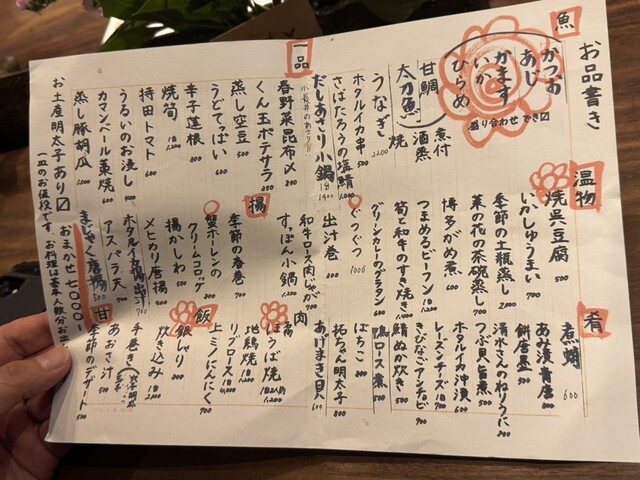 お品書き
魚
かつお
あじ
かます
いか
ひらめ
盛り合わせ でき〼
甘鯛
太刀魚
煮付
酒蒸
焼
うなぎ 2200
ホタルイカ串 500
さばたろうの塩鯖 1,000
だしあさり小鍋
一品
春野菜昆布〆 800
くん玉ポテサラ
うどてっぱい 600
蒸し空豆 500
辛子蓮根 600
焼筍
持田トマト 600
うるいのお浸し 400
カマンベール菜焼 600
蒸し豚胡瓜 1,000
お土産明太子あり〼
温物
焼呉豆腐 500
いかしゅうまい 700
季節の土瓶蒸し 2,000
菜の花の茶碗蒸し 700
博多がめ煮 600
つまめるビーフン
筍と和牛のすき焼き
グリーンカレーのグラタン 600
ぐつぐつ 1000
出汁巻
和牛ロース肉じゃが
すっぽん小鍋 1,200
揚
季節の春巻
蟹ホーレンの
クリームコロッケ
揚かしわ 500
メヒカリ唐揚 400
アスパラ天 700
まじゃく唐揚 500
おまかせ7000〜
肴
煮蛸 600
あみ漬青唐
餅唐墨 500
清水さんのねりうに
つぶ貝旨煮 500
ホタルイカ沖漬 600
レーズンチーズ
きびなごアンチョビ 700
鯖ぬか炊き 500
鴨ロース煮 500
ばちこ
柘ちゃん明太子 800
あげまき貝 600
肉
ほうば焼
地鶏焼
リブロース
上ミノにんにく 700
飯
銀しゃり
炊き込み
手巻き
あおさ汁 500
甘
季節のデザート 500